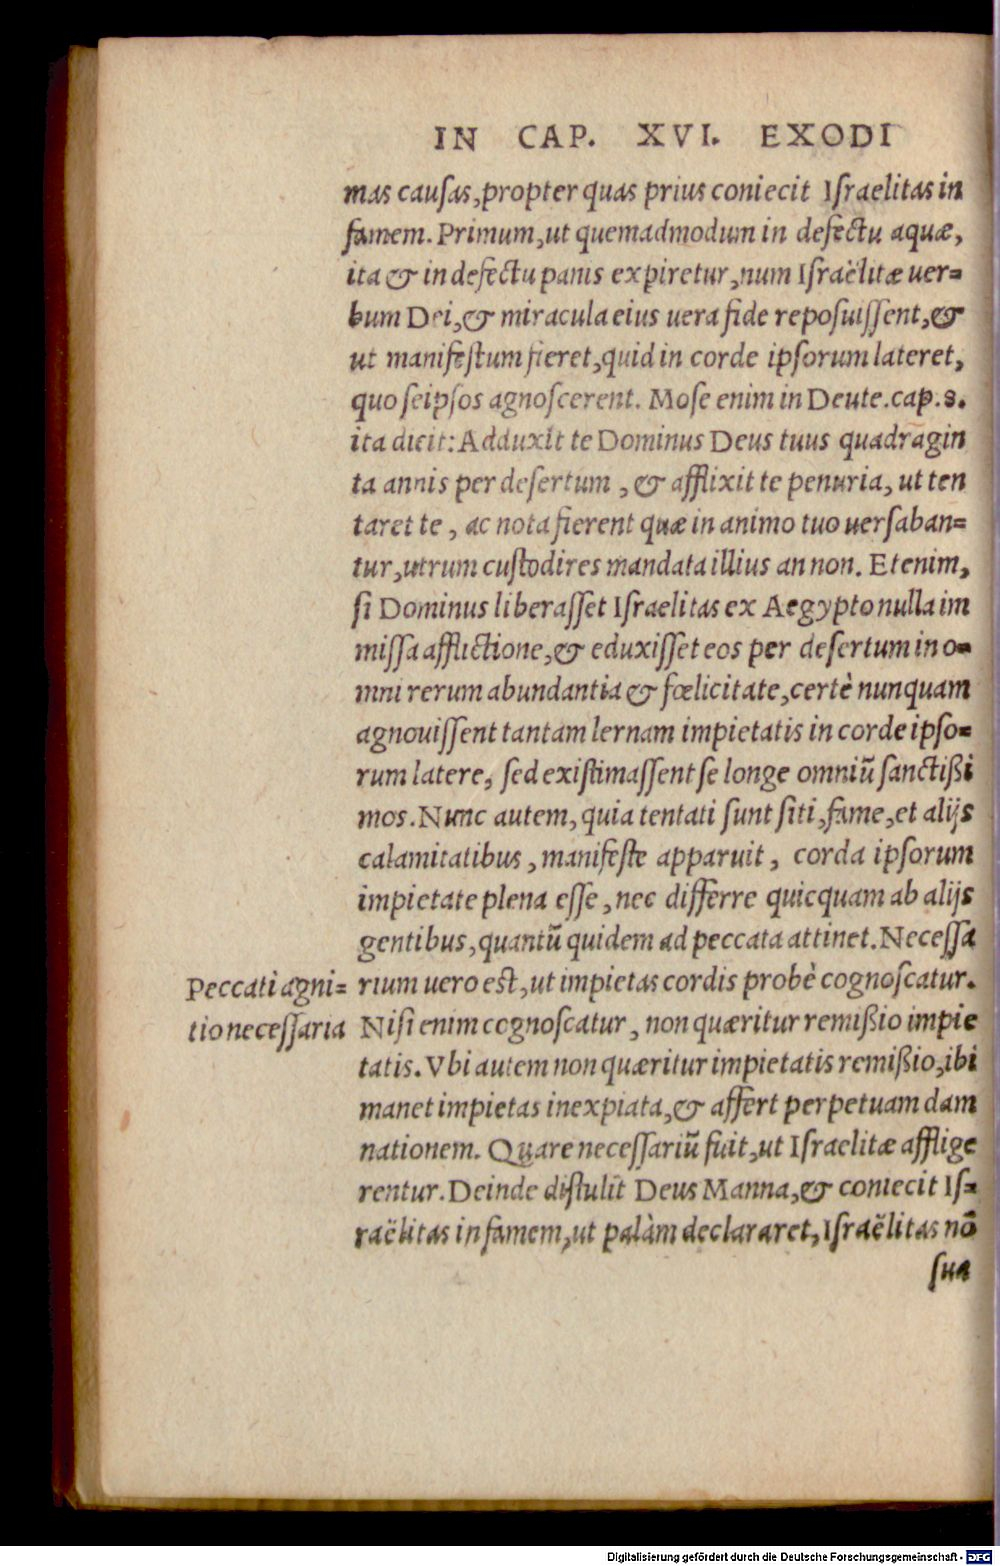 IN CAP. XVI. EXODI
mas causas, propter quas prius coniecit Israelitas in
famem. Primum, ut quemadmodum in defectu aquæ,
ita & in defectu panis expiretur, num Israëlitæ uer=
bum Dei, & miracula eius uera fide reposuissent, &
ut manifestum fieret, quid in corde ipsorum lateret,
quo seipsos agnoscerent. Mose enim in Deute. cap. 8.
ita dicit: Adduxit te Dominus Deus tuus quadragin
ta annis per desertum, & afflixit te penuria, ut ten
taret te, ac nota fierent quæ in animo tuo uersaban=
tur, utrum custodires mandata illius an non. Etenim,
si Dominus liberasset Israelitas ex Aegypto nulla im
missa afflictione, & eduxisset eos per desertum in o=
mni rerum abundantia & fœlicitate, certè nunquam
agnouissent tantam lernam impietatis in corde ipso=
rum latere, sed existimassent se longe omniũ sanctißi
mos. Nunc autem, quia tentati sunt siti, fame, et alijs
calamitatibus, manifeste apparuit, corda ipsorum
impietate plena esse, nec differre quicquam ab alijs
gentibus, quantũ quidem ad peccata attinet. Necessa
rium uero est, ut impietas cordis probè cognoscatur.
Peccati agni=
tio necessaria
Nisi enim cognoscatur, non quæritur remißio impie
tatis. Vbi autem non quæritur impietatis remißio, ibi
manet impietas inexpiata, & affert perpetuam dam
nationem. Quare necessariũ fuit, ut Israelitæ afflige
rentur. Deinde distulit Deus Manna, & coniecit Is=
raëlitas in famem, ut palàm declararet, Israëlitas nõ
sua
Digitalisierung gefördert durch die Deutsche Forschungsgemeinschaft - DFG